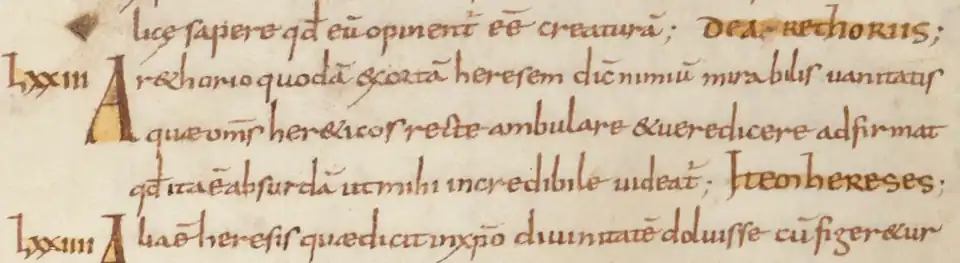 licę sapere qđ eū opinent᷑ eē creaturā; DEA RETHORIIS;
LXXIII A rethorio quodā & ortā heresem dic̄ nimiū mirabilis uanitatis
quae om̄s her&icos recte ambulare & uere dicere adfirmat
qđ ita ē absurdā ut mihi incredibile uideat᷑; Item hereses;
LXXIIII Alia ē heresis quae dicit in xp̄o diuinitatē doluisse cū figer&ur